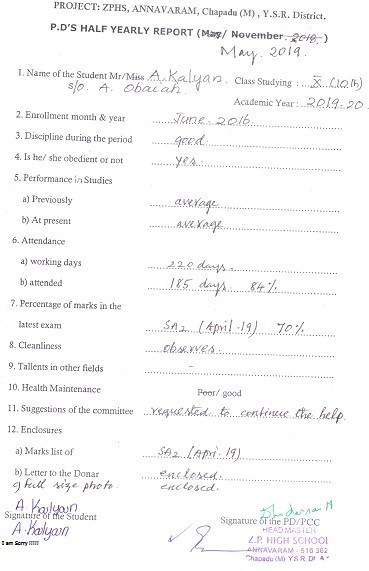 PROJECT: ZPHS, ANNAVARAM, Chapadu (M) , Y.S.R. District.
P.D'S HALF YEARLY REPORT (May/ November 2018 )
May. 2019.
1. Name of the Student Mr/Miss A. Kalyan Class Studying : X (10th)
S/o. A. Obaiah Academic Year : 2019-20
2. Enrollment month & year June - 2016.
3. Discipline during the period good.
4. Is he/ she obedient or not yes.
5. Performance in Studies
a) Previously average
b) At present average
6. Attendance
a) working days 220 days.
b) attended 185 days 84%
7. Percentage of marks in the
latest exam SA2 (April-19) 70%
8. Cleanliness observes.
9. Tallents in other fields -
10. Health Maintenance Poor/ good
11. Suggestions of the committee requested to continue the help.
12. Enclosures
a) Marks list of SA2 (April-19)
b) Letter to the Donar enclosed.
c) full size photo. enclosed.
A. Kalyan
Signature of the Student Signature of the PD/PCC
A. Kalyan HEAD MASTER
Z.P. HIGH SCHOOL
ANNAVARAM - 516 362
Chapadu (M) Y S R Dt
I am Sorry !!!!!